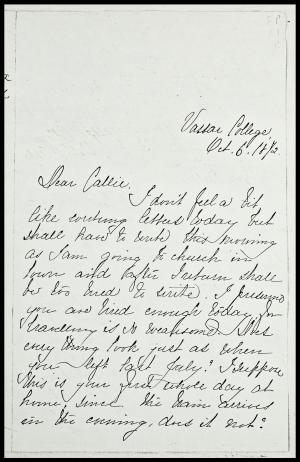 Vassar College,
Oct. 6. 1872
Dear Callie,
I don't feel a bit
like writing letters today but
shall have to write this morning
as I am going to church in
town and after I return shall
be too tired to write. I presume
you are tired enough today, for
traveling is so wearisome. Does
every thing look just as when
you left last July? I suppose
this is your first whole day at
home, since the train arrives
in the evening, does it not?